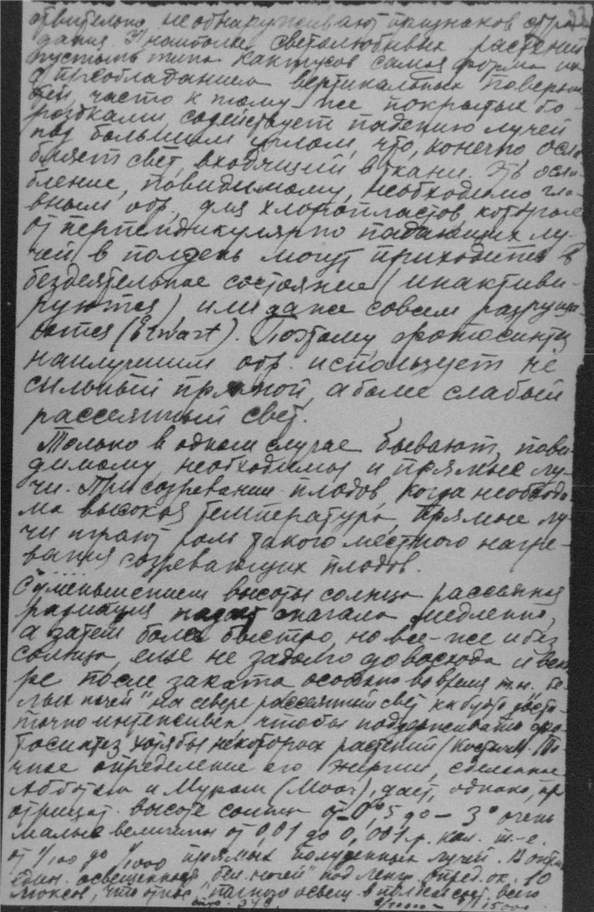 ствительно, не обнаруживают признаков стра-
дания. У наиболее светолюбивых растений
пустынь типа кактусов самая форма их
с преобладанием вертикальных поверхно-
стей, часто к тому же покрытых бо-
роздками, содействует падению лучей
под большим углом, что, конечно осла-
бляет свет, входящий в ткани. Это осла-
бление, повидимому, необходимо гла-
вным обр. для хлоропластов, которые
от перпендикулярно падающих лу-
чей в полдень могут приходить в
бездеятельное состояние (инактиви-
руются) или даже совсем разруша-
ются (Ewart). Поэтому фотосинтез
наилучшим обр. использует не
сильный прямой, а более слабый
рассеянный свет.
Только в одном случае бывают, пови-
димому, необходимы и прямые лу-
чи. При созревании плодов, когда необходи-
ма высокая температура, прямые лу-
чи играют роль такого местного нагре-
вания созревающих плодов.
С уменьшением высоты солнца рассеянная
радиация падает сначала медленно,
а затем более быстро, но все-же и без
солнца, еще не задолго до восхода и вече-
ре после заката особенно во время т.н. бе-
лых ночей" на севере рассеянный свет как будто доста-
точно интенсивен чтобы поддерживать фо-
тосинтез хотя бы некоторых растений То-
чное определение его энергии, сделанное
Абботом и Муром (Moor), дает, однако, при
отрицат. высоте солнца от -0°,5 до -3° очень
малые величины от 0,01 до 0,001 гр. кал. т.-е.
от 1/100 до 1/1000 прямых полуденных лучей.
освещенная бел. ночей" под Ленгр. опред. ок. 10
люксов, что относ. полного освещ. в полдень сост. всего